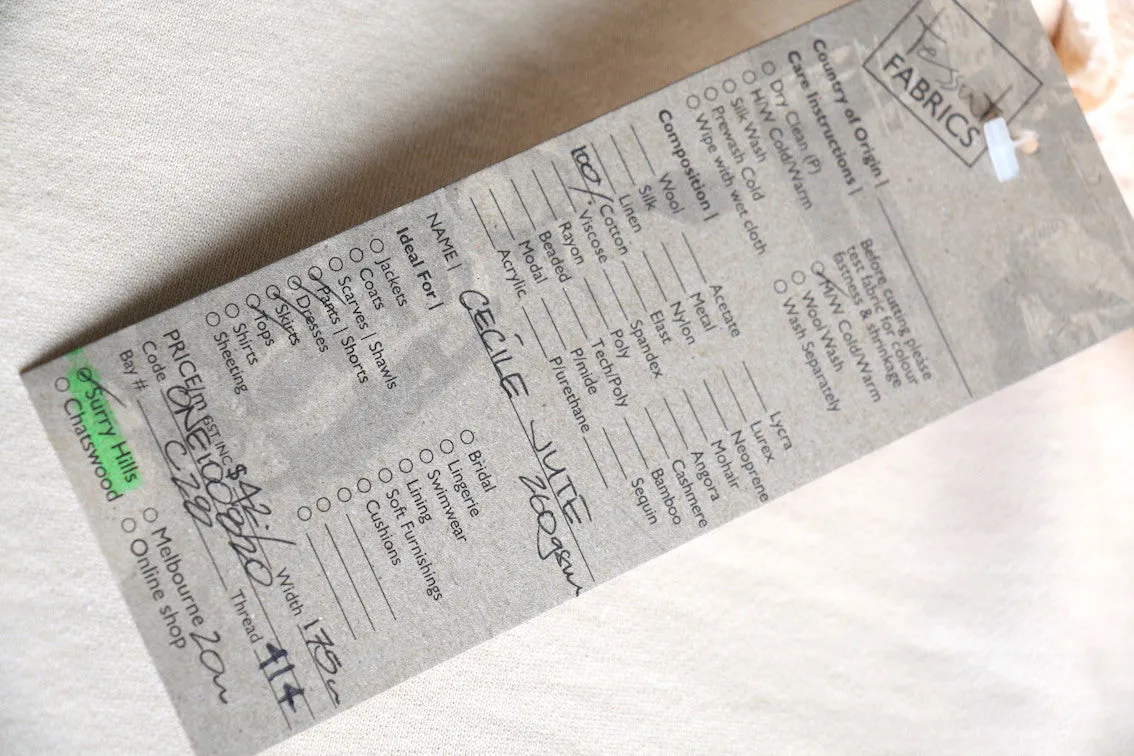 Tessuti
FABRICS
Country of Origin |
Care Instructions |
Dry Clean (P)
H/W Cold/Warm
Silk Wash
Prewash Cold
Wipe with wet cloth
Before cutting please
test fabric for colour
fastness & shrinkage
M/W Cold/Warm
Wool/Wash
Wash Separately
Composition |
Wool
Silk
Linen
100% Cotton
Viscose
Rayon
Beaded
Modal
Acrylic
Acetate
Metal
Nylon
Elast
Spandex
Poly
Tech/Poly
P/mide
P/urethane
Lycra
Lurex
Neoprene
Mohair
Angora
Cashmere
Bamboo
Sequin
NAME | CECILE JUTE
260gsm
Ideal For |
Jackets
Coats
Scarves | Shawls
Pants | Shorts
Dresses
Skirts
Tops
Shirts
Sheeting
Bridal
Lingerie
Swimwear
Lining
Soft Furnishings
Cushions
PRICE/m GST INC $42/ Width 175
Code Thread 414
Bay # C290 20m
Surry Hills
Chatswood
Melbourne
Online shop